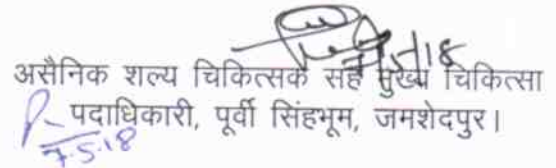 असैनिक शल्य चिकित्सक सह मुख्य चिकित्सा
पदाधिकारी, पूर्वी सिंहभूम, जमशेदपुर।
7.5.18